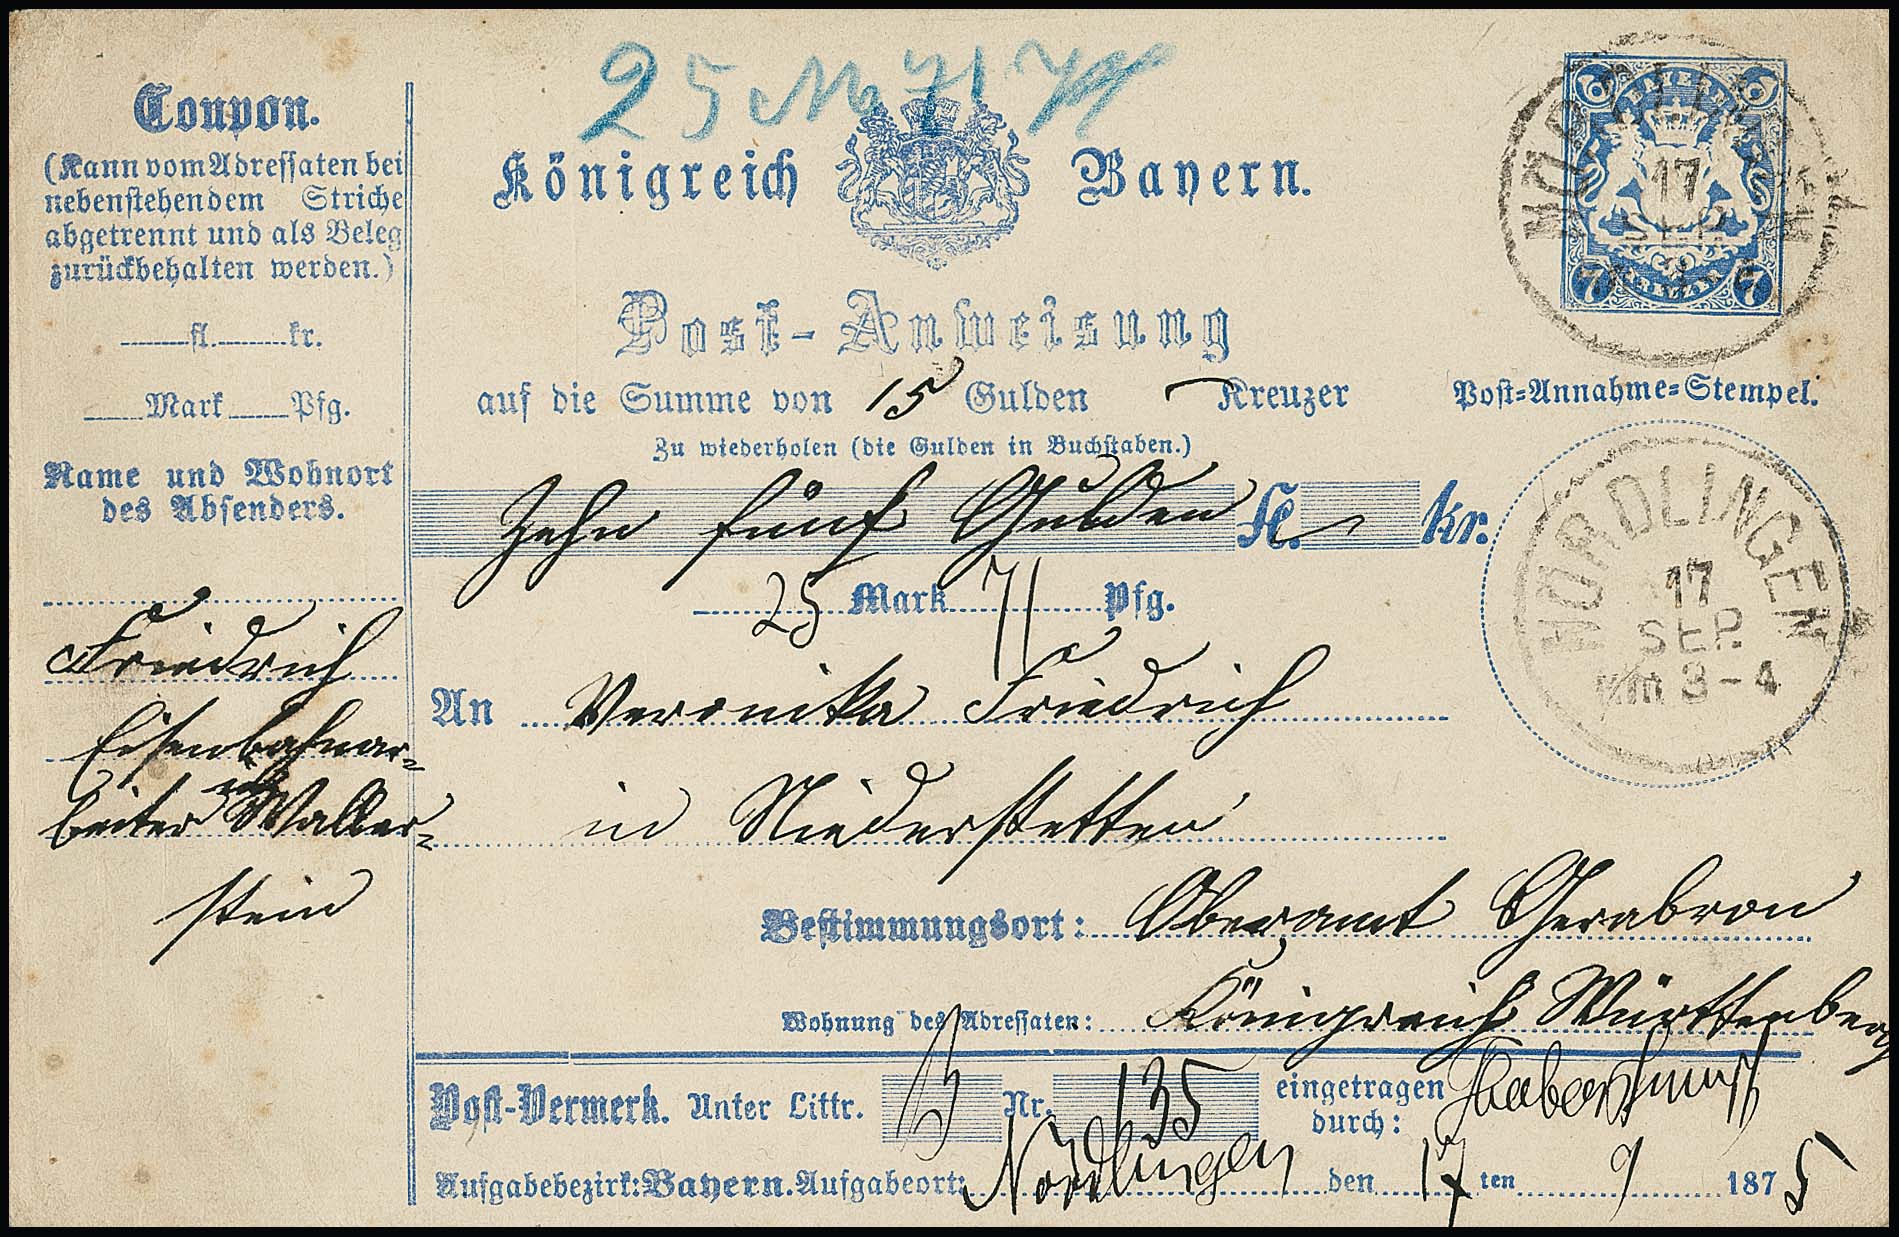 25 M 71 Pf
Coupon.
(Kann vom Adressaten bei
nebenstehendem Striche
abgetrennt und als Beleg
zurückbehalten werden.)
fl. kr.
Mark Pfg.
Name und Wohnort
des Absenders.
Friedrich
Eisenbahnar=
beiter Waller=
stein
Königreich Bayern.
7 7
7 7
KREUZER
NÖRDLINGEN
17
SEP.
Post-Anweisung
auf die Summe von 15 Gulden — Kreuzer
Zu wiederholen (die Gulden in Buchstaben.)
Zehn fünf Gulden fl. — kr.
25 Mark 71 Pfg.
Post=Annahme=Stempel.
NÖRDLINGEN
17
SEP.
NM 3-4
An Veronika Friedrich
in Niederstetten
Bestimmungsort: Oberamt Gerabronn
Wohnung des Adressaten: Königreich Württemberg
Post-Vermerk. Unter Littr. B Nr. 135 eingetragen
durch:
Aufgabebezirk: Bayern. Aufgabeort: Nördlingen den 17 ten 9 1875